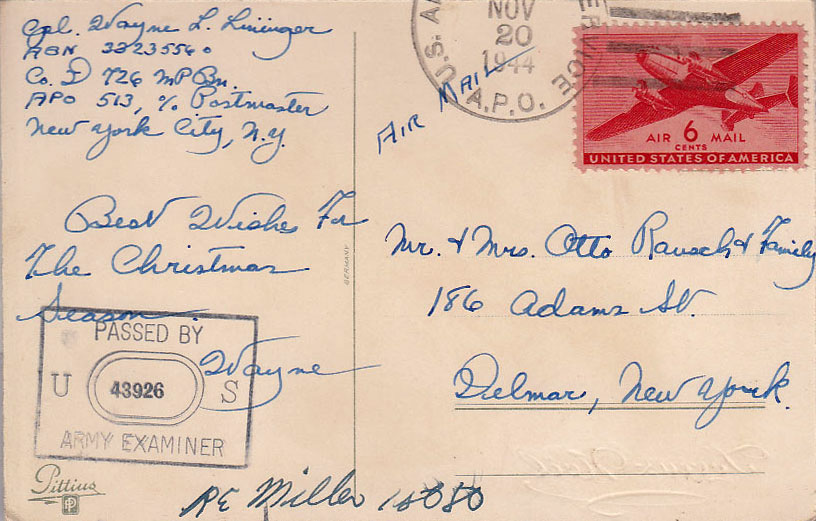 Cpl. Wayne L. Lininger
ASN 32235560
Co. D 726 MP Bn.
APO 513, c/o Postmaster
New York City, N.Y.
Best Wishes For
The Christmas
Season.
Wayne
PASSED BY
U 43926 S
ARMY EXAMINER
Pittius
RE Miller
GERMANY
U.S. A.P.O. SERVICE
NOV
20
1944
AIR MAIL
AIR 6 MAIL
CENTS
UNITED STATES OF AMERICA
Mr. & Mrs. Otto Rausch & Family
186 Adams St.
Delmar, New York.